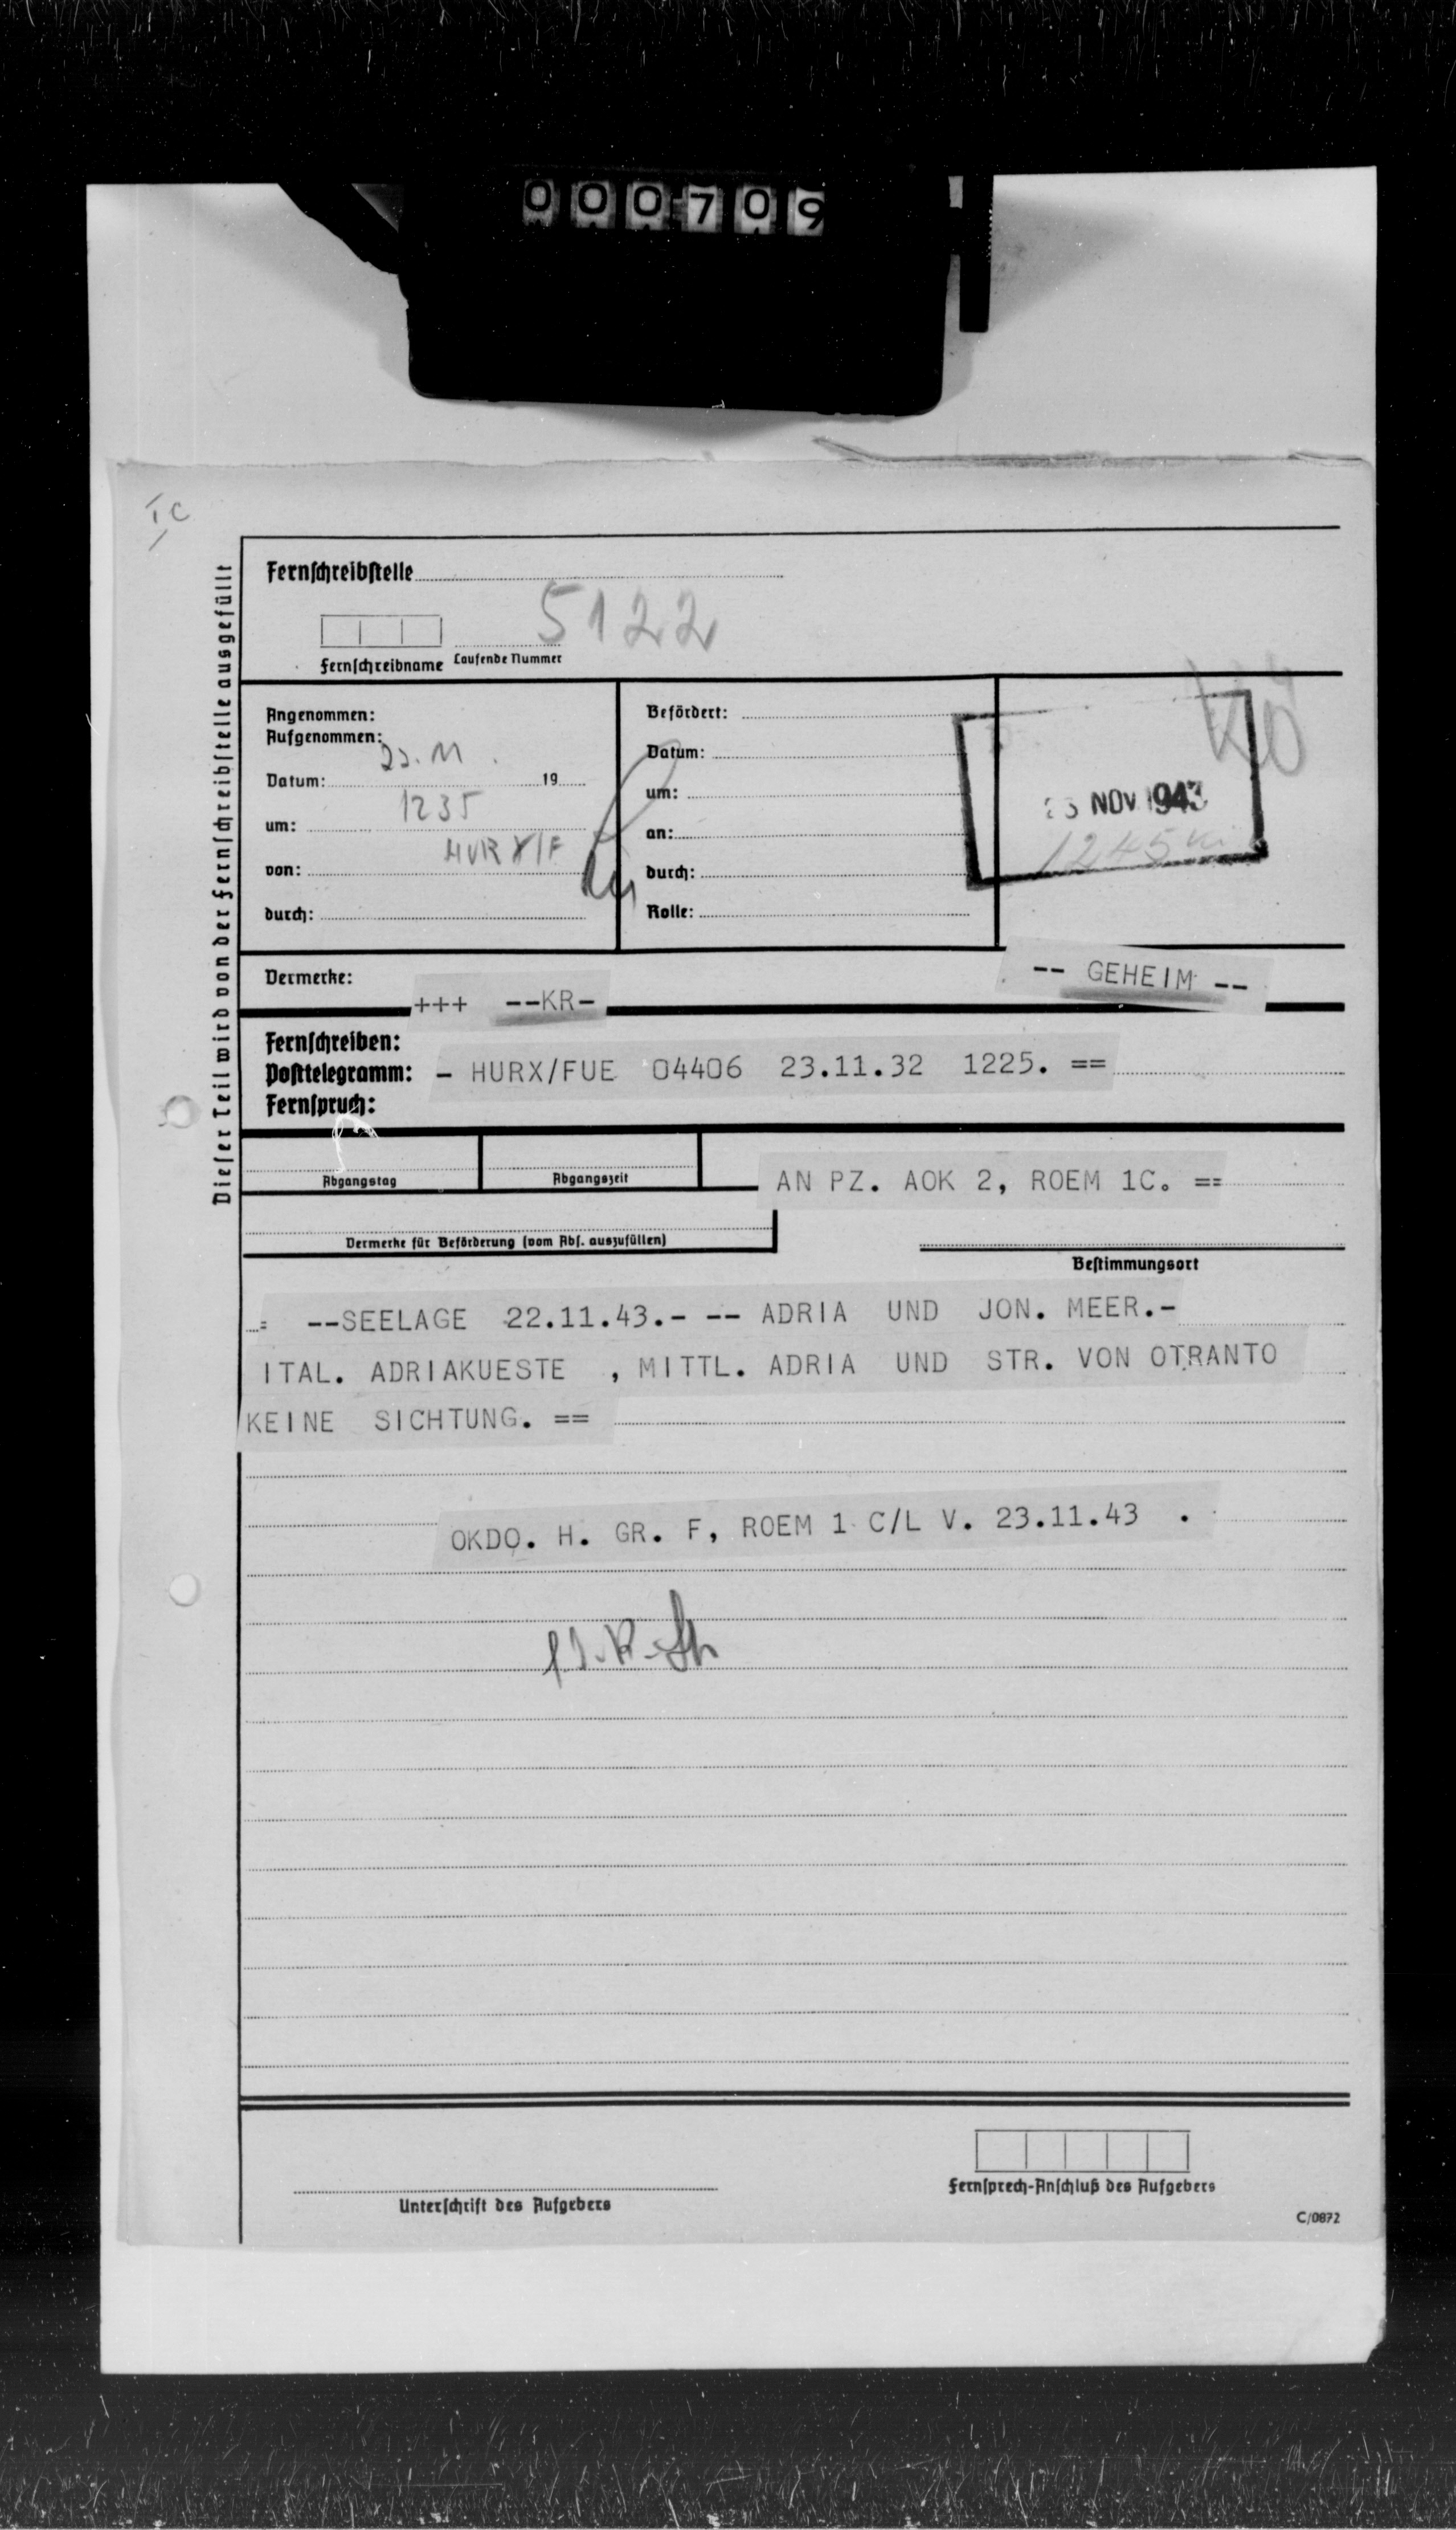 000709
Ic
Dieser Teil wird von der Fernschreibstelle ausgefüllt
Fernschreibstelle
5122
Fernschreibname Laufende Nummer
Angenommen:
Aufgenommen:
Datum: 23. 11. 19
um: 1235
von: HURX/F
durch:
Befördert:
Datum:
um:
an:
durch:
Rolle:
23 NOV 1943
1245
Vermerke:
+++ --KR-
-- GEHEIM --
Fernschreiben:
Posttelegramm: - HURX/FUE 04406 23.11.32 1225. ==
Fernspruch:
Abgangstag
Abgangszeit
AN PZ. AOK 2, ROEM 1C. ==
Vermerke für Beförderung (vom Abs. auszufüllen)
Bestimmungsort
= --SEELAGE 22.11.43.- -- ADRIA UND JON. MEER.-
ITAL. ADRIAKUESTE , MITTL. ADRIA UND STR. VON OTRANTO
KEINE SICHTUNG. ==
OKDO. H. GR. F, ROEM 1 C/L V. 23.11.43 .
Unterschrift des Aufgebers
Fernsprech-Anschluß des Aufgebers
C/0872